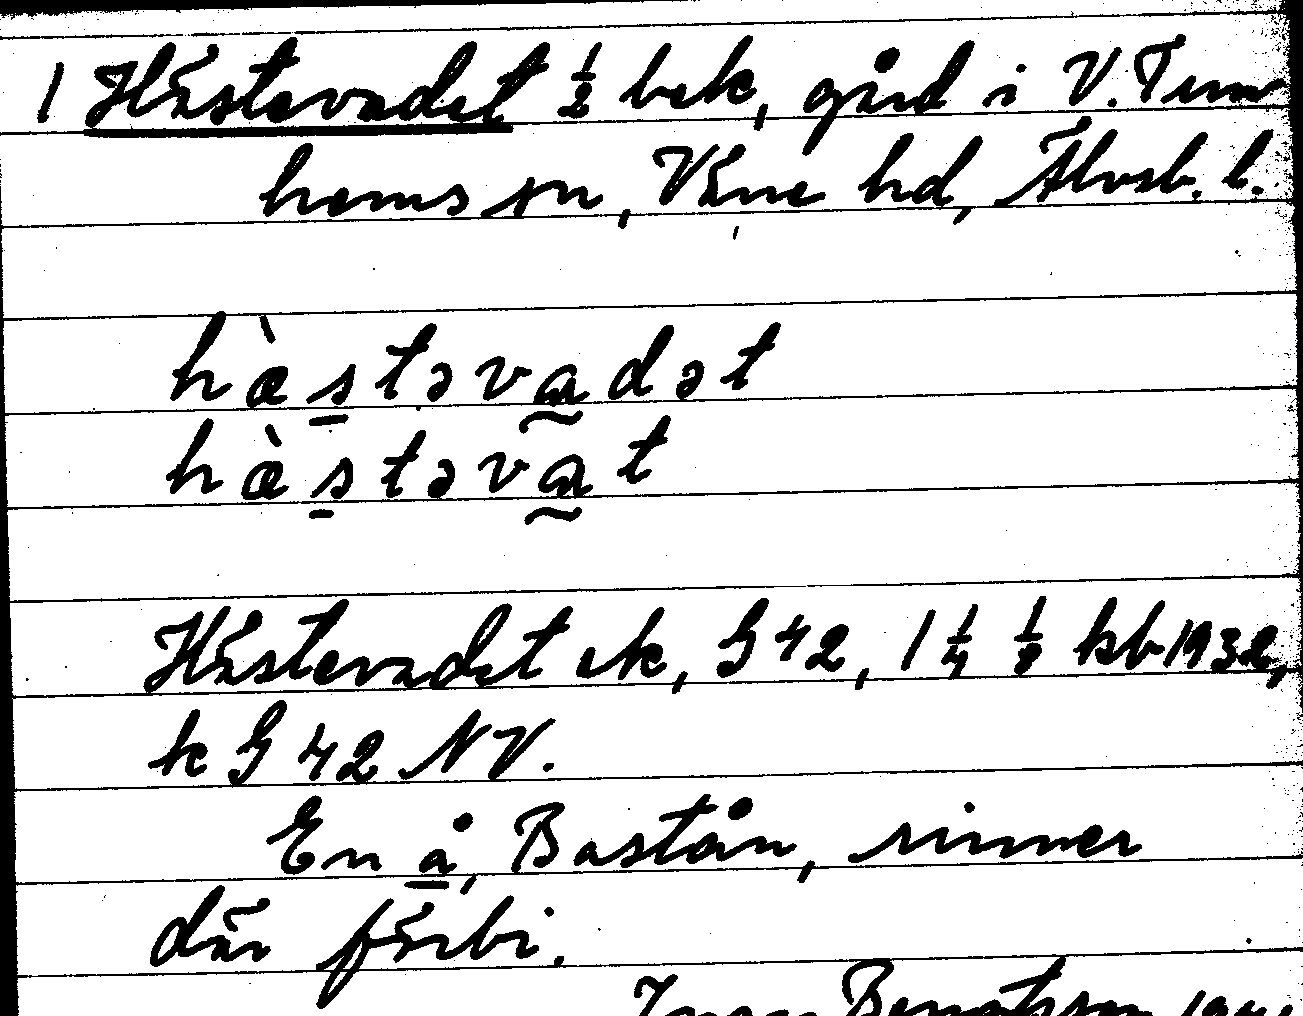 1 Hästevadet ½ bek, gård i V. Tun
hems sn, Väne hd, Älvsb. l.
hæ̀stəvadət
hæ̀stəvat
Hästevadet ek, G 42, 1 ¼ ⅛ kb 1932,
k G 42 NV.
En å, Bastån, rinner
där förbi.